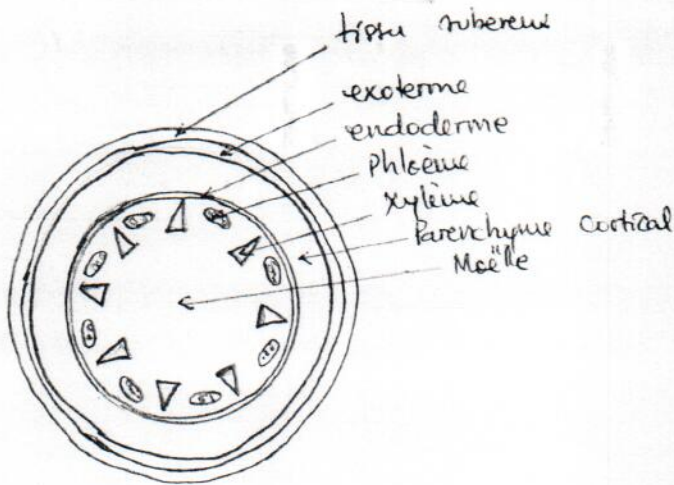 tissu subereux
exoterme
endoderme
Phloème
xylème
Parenchyme cortical
Moëlle